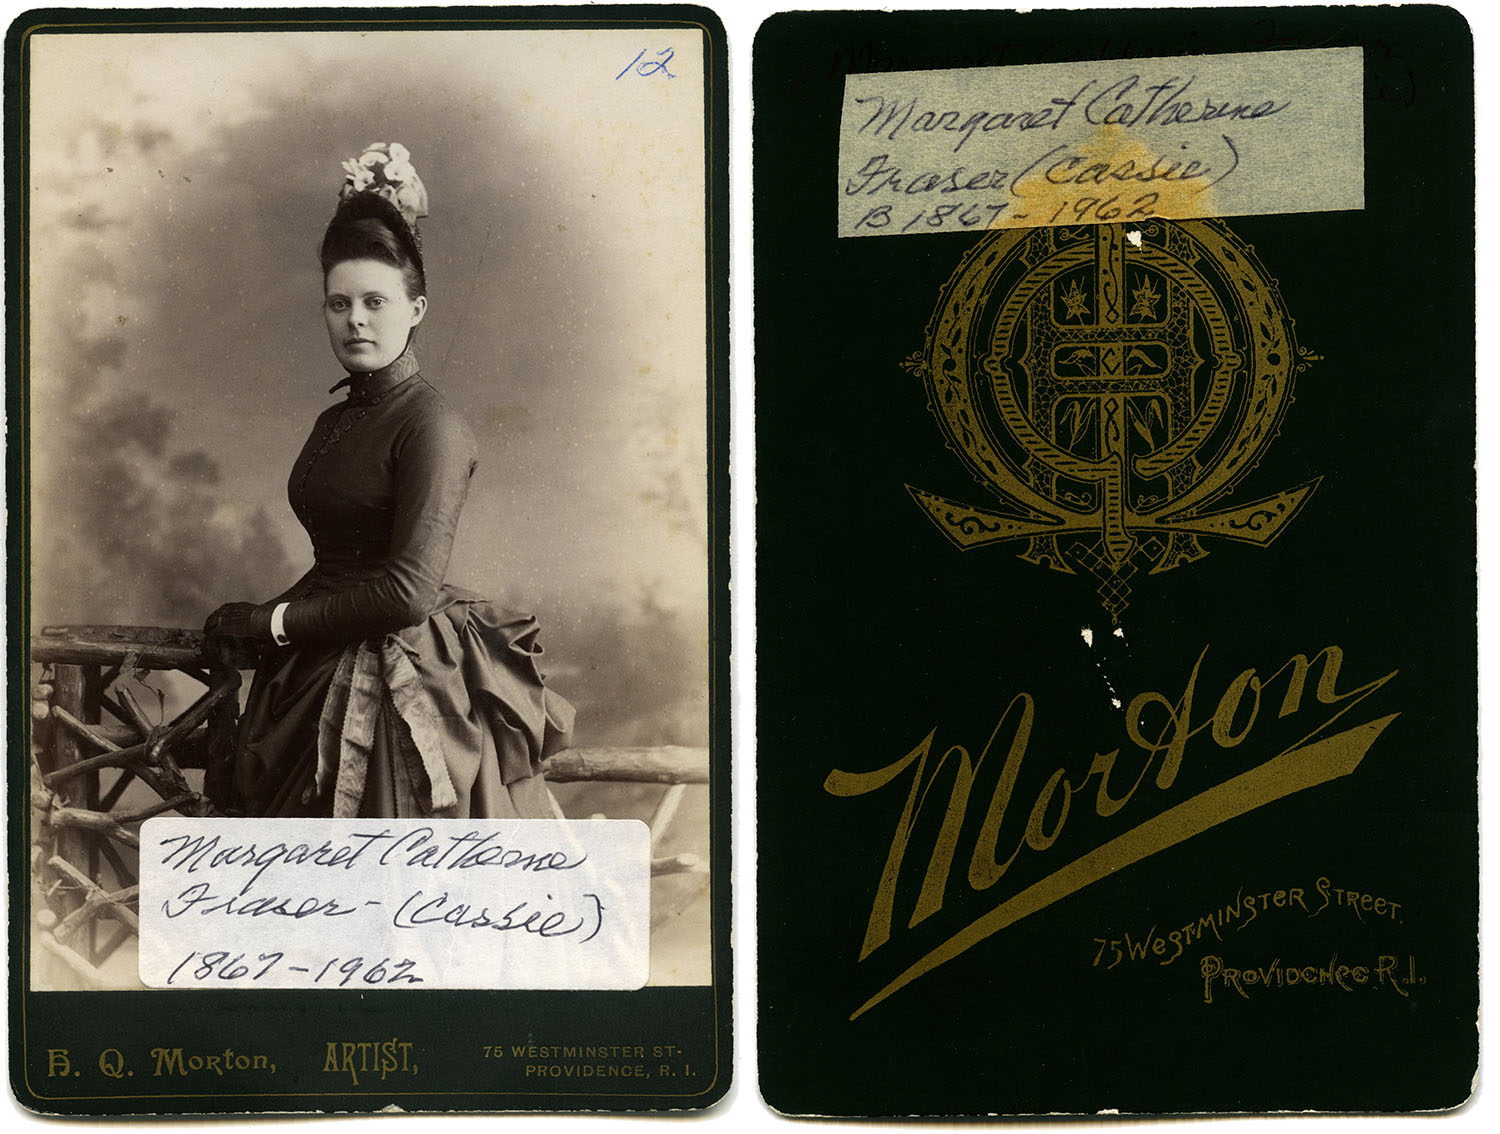 12
Margaret Catherine
Fraser - (Cassie)
1867 - 1962
H. Q. Morton, ARTIST,
75 WESTMINSTER ST-
PROVIDENCE, R. I.
Margaret Catherine
Fraser (Cassie)
B 1867 - 1962
Morton
75 Westminster Street.
Providence R.I.